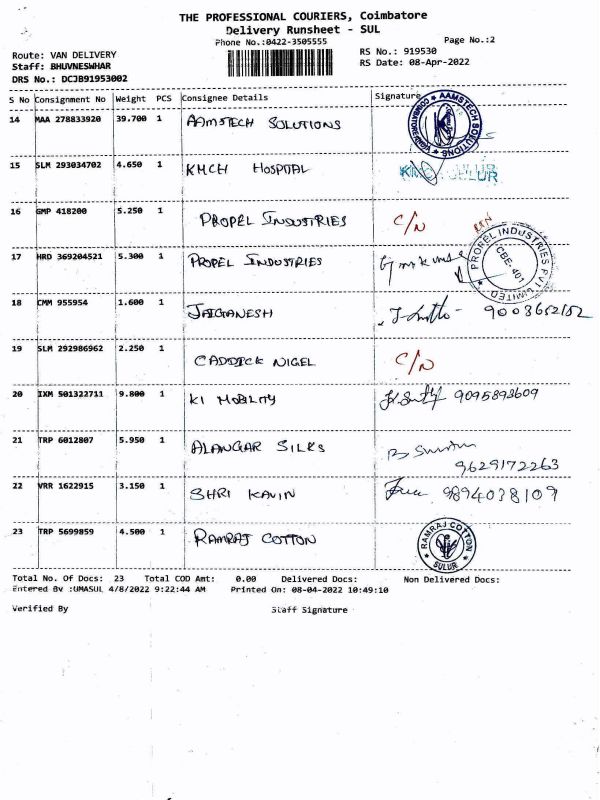 THE PROFESSIONAL COURIERS, Coimbatore
Delivery Runsheet - SUL
Phone No.:0422-3505555
Page No.:2
Route: VAN DELIVERY
RS No.: 919530
Staff: BHUVNESWHAR
RS Date: 08-Apr-2022
DRS No.: DCJB91953002
S No Consignment No Weight PCS Consignee Details Signature
14 MAA 278833920 39.700 1 AAMSTECH SOLUTIONS AAMSTECH SOLUTIONS
15 SLM 293034702 4.650 1 KMCH HOSPITAL SULUR
16 GMP 418200 5.250 1 PROPEL INDUSTRIES C/N
17 HRD 369204521 5.300 1 PROPEL INDUSTRIES PROPEL INDUSTRIES PVT LIMITED CBE-401
18 CMM 955954 1.600 1 JAIGANESH 9003652152
19 SLM 292986962 2.250 1 CADDICK NIGEL C/N
20 IXM 501322711 9.800 1 KI MOBILITY 9095893609
21 TRP 6012807 5.950 1 ALANGAR SILKS
9629172263
22 VRR 1622915 3.150 1 SHRI KAVIN 9894038109
23 TRP 5699859 4.500 1 RAMRAJ COTTON RAMRAJ COTTON SULUR
Total No. Of Docs: 23 Total COD Amt: 0.00 Delivered Docs: Non Delivered Docs:
Entered By :UMASUL 4/8/2022 9:22:44 AM Printed On: 08-04-2022 10:49:10
Verified By Staff Signature